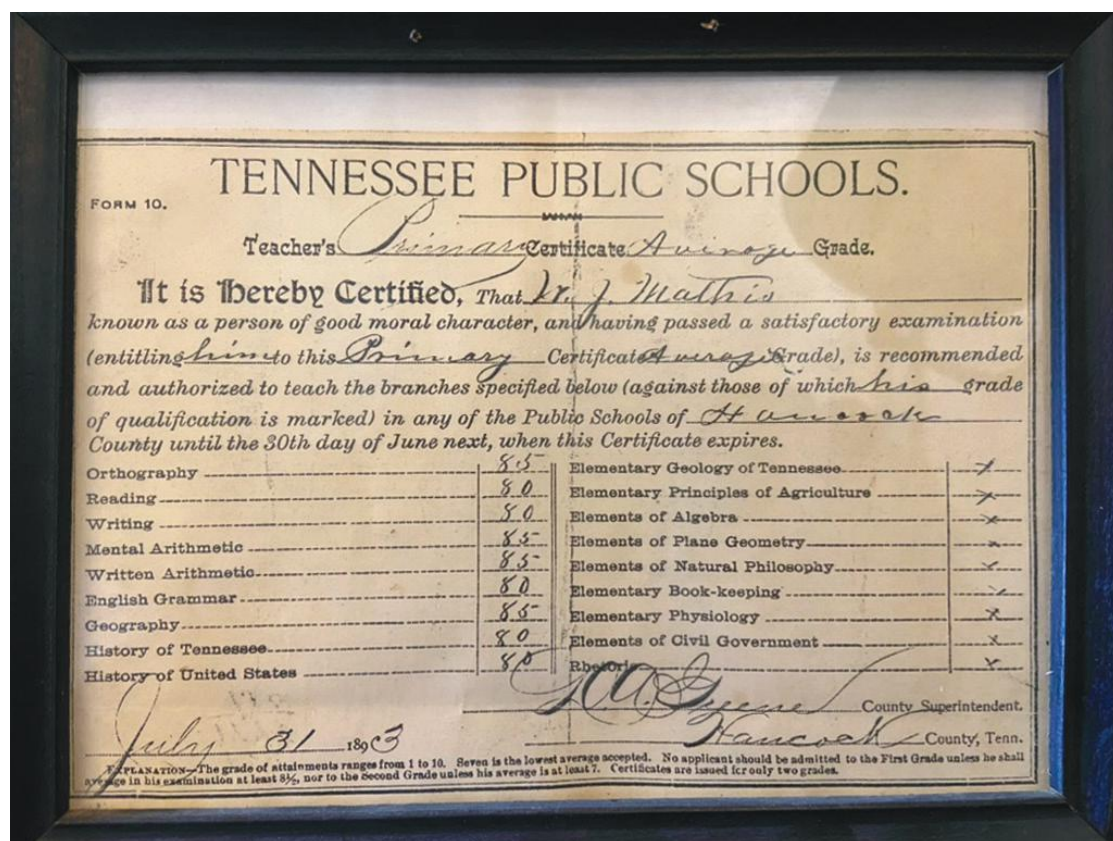 TENNESSEE PUBLIC SCHOOLS.
FORM 10.
Teacher's Primary Certificate Average Grade.
It is Hereby Certified, That W. J. Mathis
known as a person of good moral character, and having passed a satisfactory examination
(entitling him to this Primary Certificate Average Grade), is recommended
and authorized to teach the branches specified below (against those of which his grade
of qualification is marked) in any of the Public Schools of Hancock
County until the 30th day of June next, when this Certificate expires.
Orthography 85 Elementary Geology of Tennessee x
Reading 80 Elementary Principles of Agriculture x
Writing 80 Elements of Algebra x
Mental Arithmetic 85 Elements of Plane Geometry x
Written Arithmetic 85 Elements of Natural Philosophy x
English Grammar 80 Elementary Book-keeping x
Geography 85 Elementary Physiology x
History of Tennessee 80 Elements of Civil Government x
History of United States 80 Rhetoric x
Greene County Superintendent.
July 31 1893 Hancock County, Tenn.
EXPLANATION—The grade of attainments ranges from 1 to 10. Seven is the lowest average accepted. No applicant should be admitted to the First Grade unless he shall
average in his examination at least 8½, nor to the Second Grade unless his average is at least 7. Certificates are issued for only two grades.